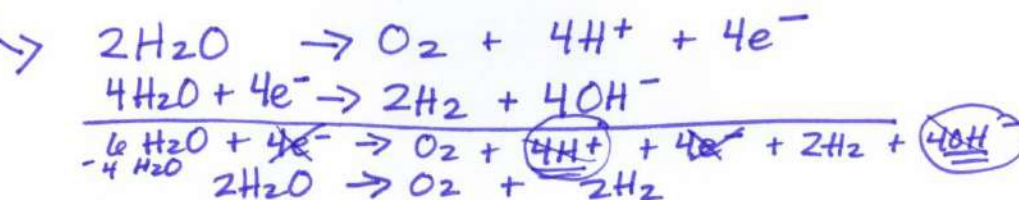 → 2H₂O → O₂ + 4H⁺ + 4e⁻
4H₂O + 4e⁻ → 2H₂ + 4OH⁻
6 H₂O + 4e⁻ → O₂ + 4H⁺ + 4e⁻ + 2H₂ + 4OH⁻
- 4 H₂O
2H₂O → O₂ + 2H₂